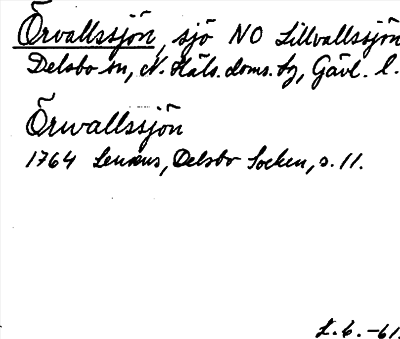 Örvallssjön, sjö NO Lillvallssjön
Delsbo sn, N. Häls. doms. hg, Gävl. l.
Örwallssjön
1764 Lenæus, Delsbo Socken, s. 11.
L. G. -61.